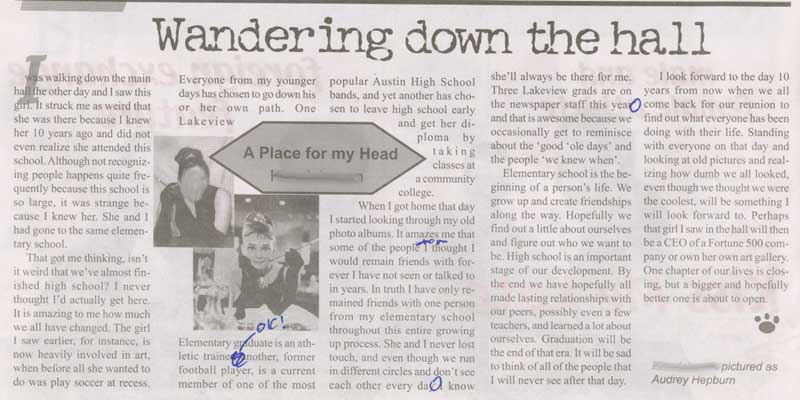 Wandering down the hall
I was walking down the main
hall the other day and I saw this
girl. It struck me as weird that
she was there because I knew
her 10 years ago and did not
even realize she attended this
school. Although not recogniz-
ing people happens quite fre-
quently because this school is
so large, it was strange be-
cause I knew her. She and I
had gone to the same elemen-
tary school.
That got me thinking, isn't
it weird that we've almost fin-
ished high school? I never
thought I'd actually get here.
It is amazing to me how much
we all have changed. The girl
I saw earlier, for instance, is
now heavily involved in art,
when before all she wanted to
do was play soccer at recess.
Everyone from my younger
days has chosen to go down his
or her own path. One
Lakeview
A Place for my Head
OK!
Elementary graduate is an ath-
letic trainer, another, former
football player, is a current
member of one of the most
popular Austin High School
bands, and yet another has cho-
sen to leave high school early
and get her di-
ploma by
taking
classes at
a community
college.
When I got home that day
I started looking through my old
photo albums. It amazes me that
some of the people I thought I
would remain friends with for-
ever I have not seen or talked to
in years. In truth I have only re-
mained friends with one person
from my elementary school
throughout this entire growing
up process. She and I never lost
touch, and even though we run
in different circles and don't see
each other every day, I know
she'll always be there for me.
Three Lakeview grads are on
the newspaper staff this year
and that is awesome because we
occasionally get to reminisce
about the 'good 'ole days' and
the people 'we knew when'.
Elementary school is the be-
ginning of a person's life. We
grow up and create friendships
along the way. Hopefully we
find out a little about ourselves
and figure out who we want to
be. High school is an important
stage of our development. By
the end we have hopefully all
made lasting relationships with
our peers, possibly even a few
teachers, and learned a lot about
ourselves. Graduation will be
the end of that era. It will be sad
to think of all of the people that
I will never see after that day.
I look forward to the day 10
years from now when we all
come back for our reunion to
find out what everyone has been
doing with their life. Standing
with everyone on that day and
looking at old pictures and real-
izing how dumb we all looked,
even though we thought we were
the coolest, will be something I
will look forward to. Perhaps
that girl I saw in the hall will then
be a CEO of a Fortune 500 com-
pany or own her own art gallery.
One chapter of our lives is clos-
ing, but a bigger and hopefully
better one is about to open.
pictured as
Audrey Hepburn